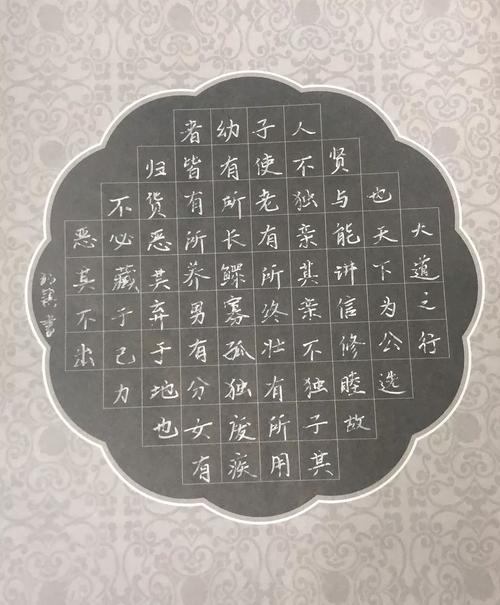 大道之行
也天下为公选
贤与能讲信修睦故
人不独亲其亲不独子其
子使老有所终壮有所用
幼有所长鳏寡孤独废疾
者皆有所养男有分女有
归货恶其弃于地也
不必藏于己力
恶其不出
书